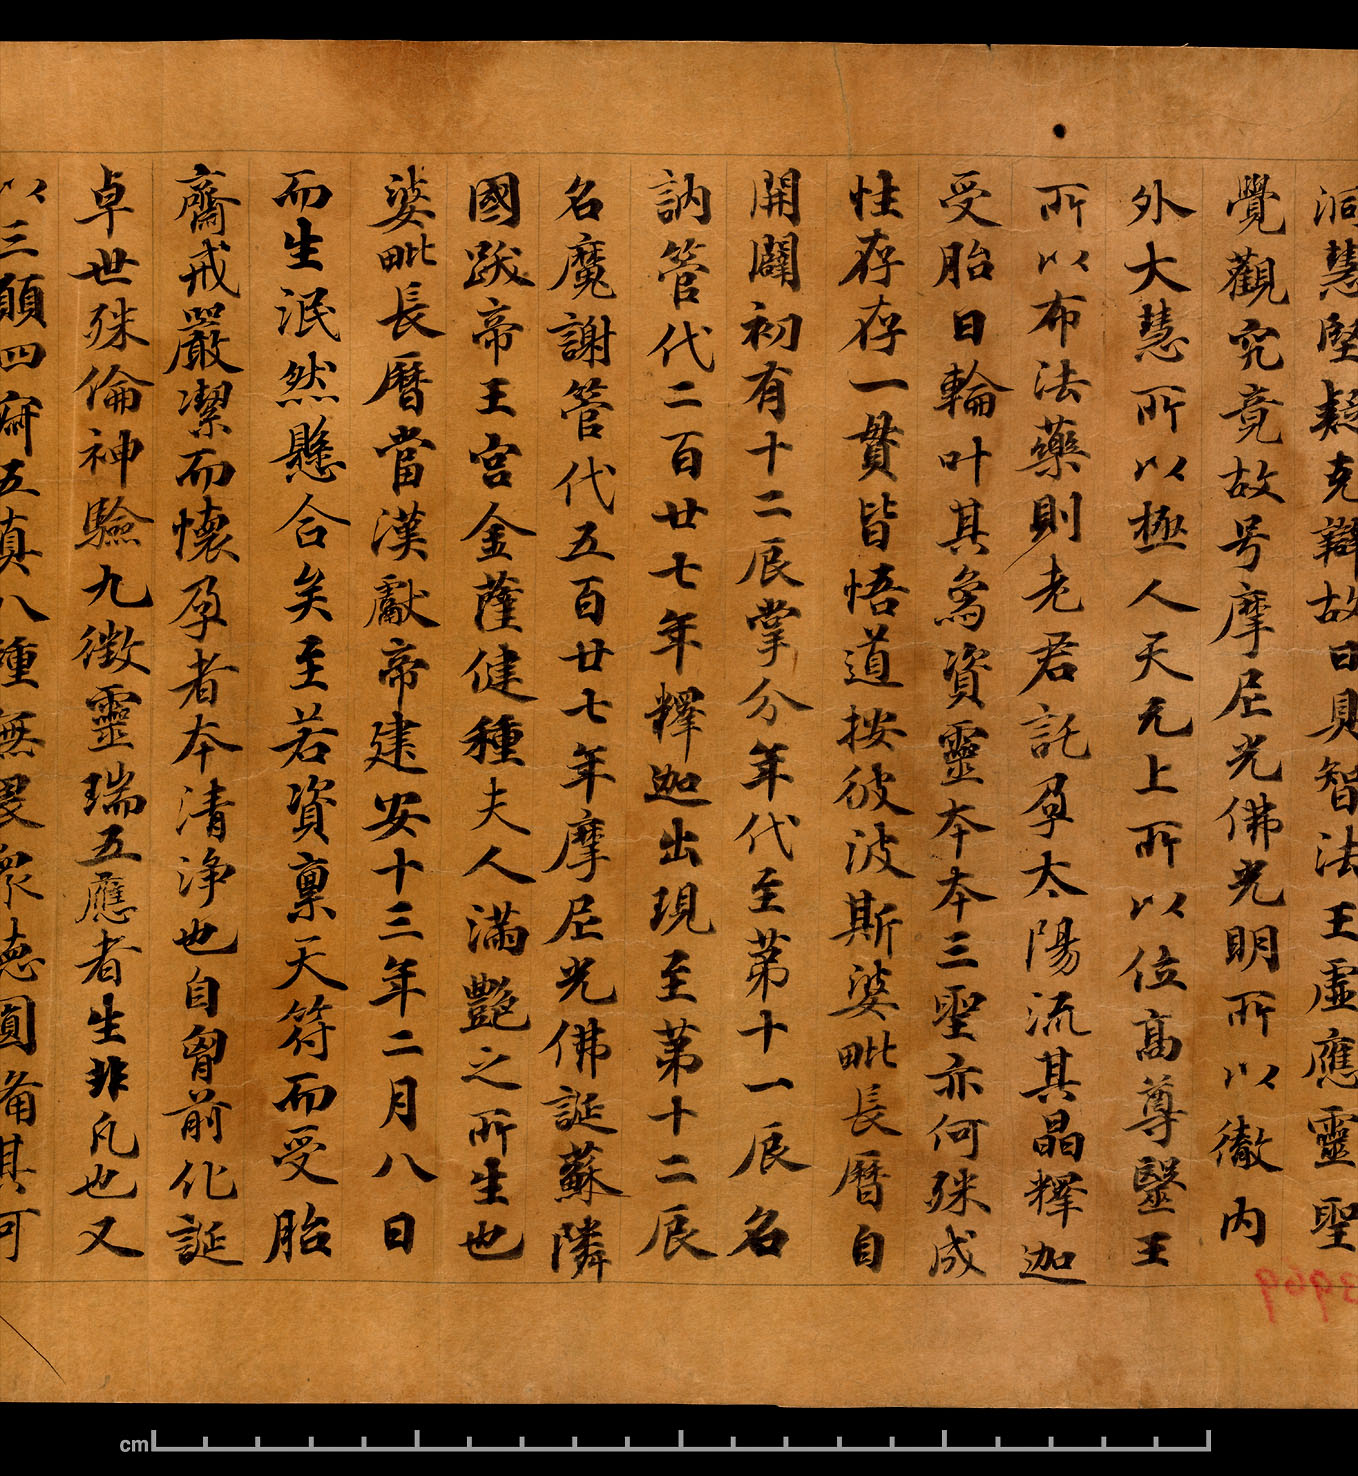 洞慧堅疑克辯故曰具智法王虛應靈聖
覺觀究竟故号摩尼光佛光明所以徹内
外大慧所以極人天无上所以位高尊毉王
所以布法藥則老君託孕太陽流其晶釋迦
受胎日輪叶其烏資靈本本三聖亦何殊成
性存存一貫皆悟道按彼波斯婆毗長曆自
開闢初有十二辰掌分年代至苐十一辰名
訥管代二百廿七年釋迦出現至苐十二辰
名魔謝管代五百廿七年摩尼光佛誕蘇隣
國跋帝王宮金薩健種夫人滿艷之所生也
婆毗長曆當漢獻帝建安十三年二月八日
而生泯然懸合矣至若資稟天符而受胎
齋戒嚴潔而懷孕者本清浄也自胷前化誕
卓世殊倫神驗九徵靈瑞五應者生非凡也又
以三願四寂五真八種無畏衆徳圓俻其可
3969
cm